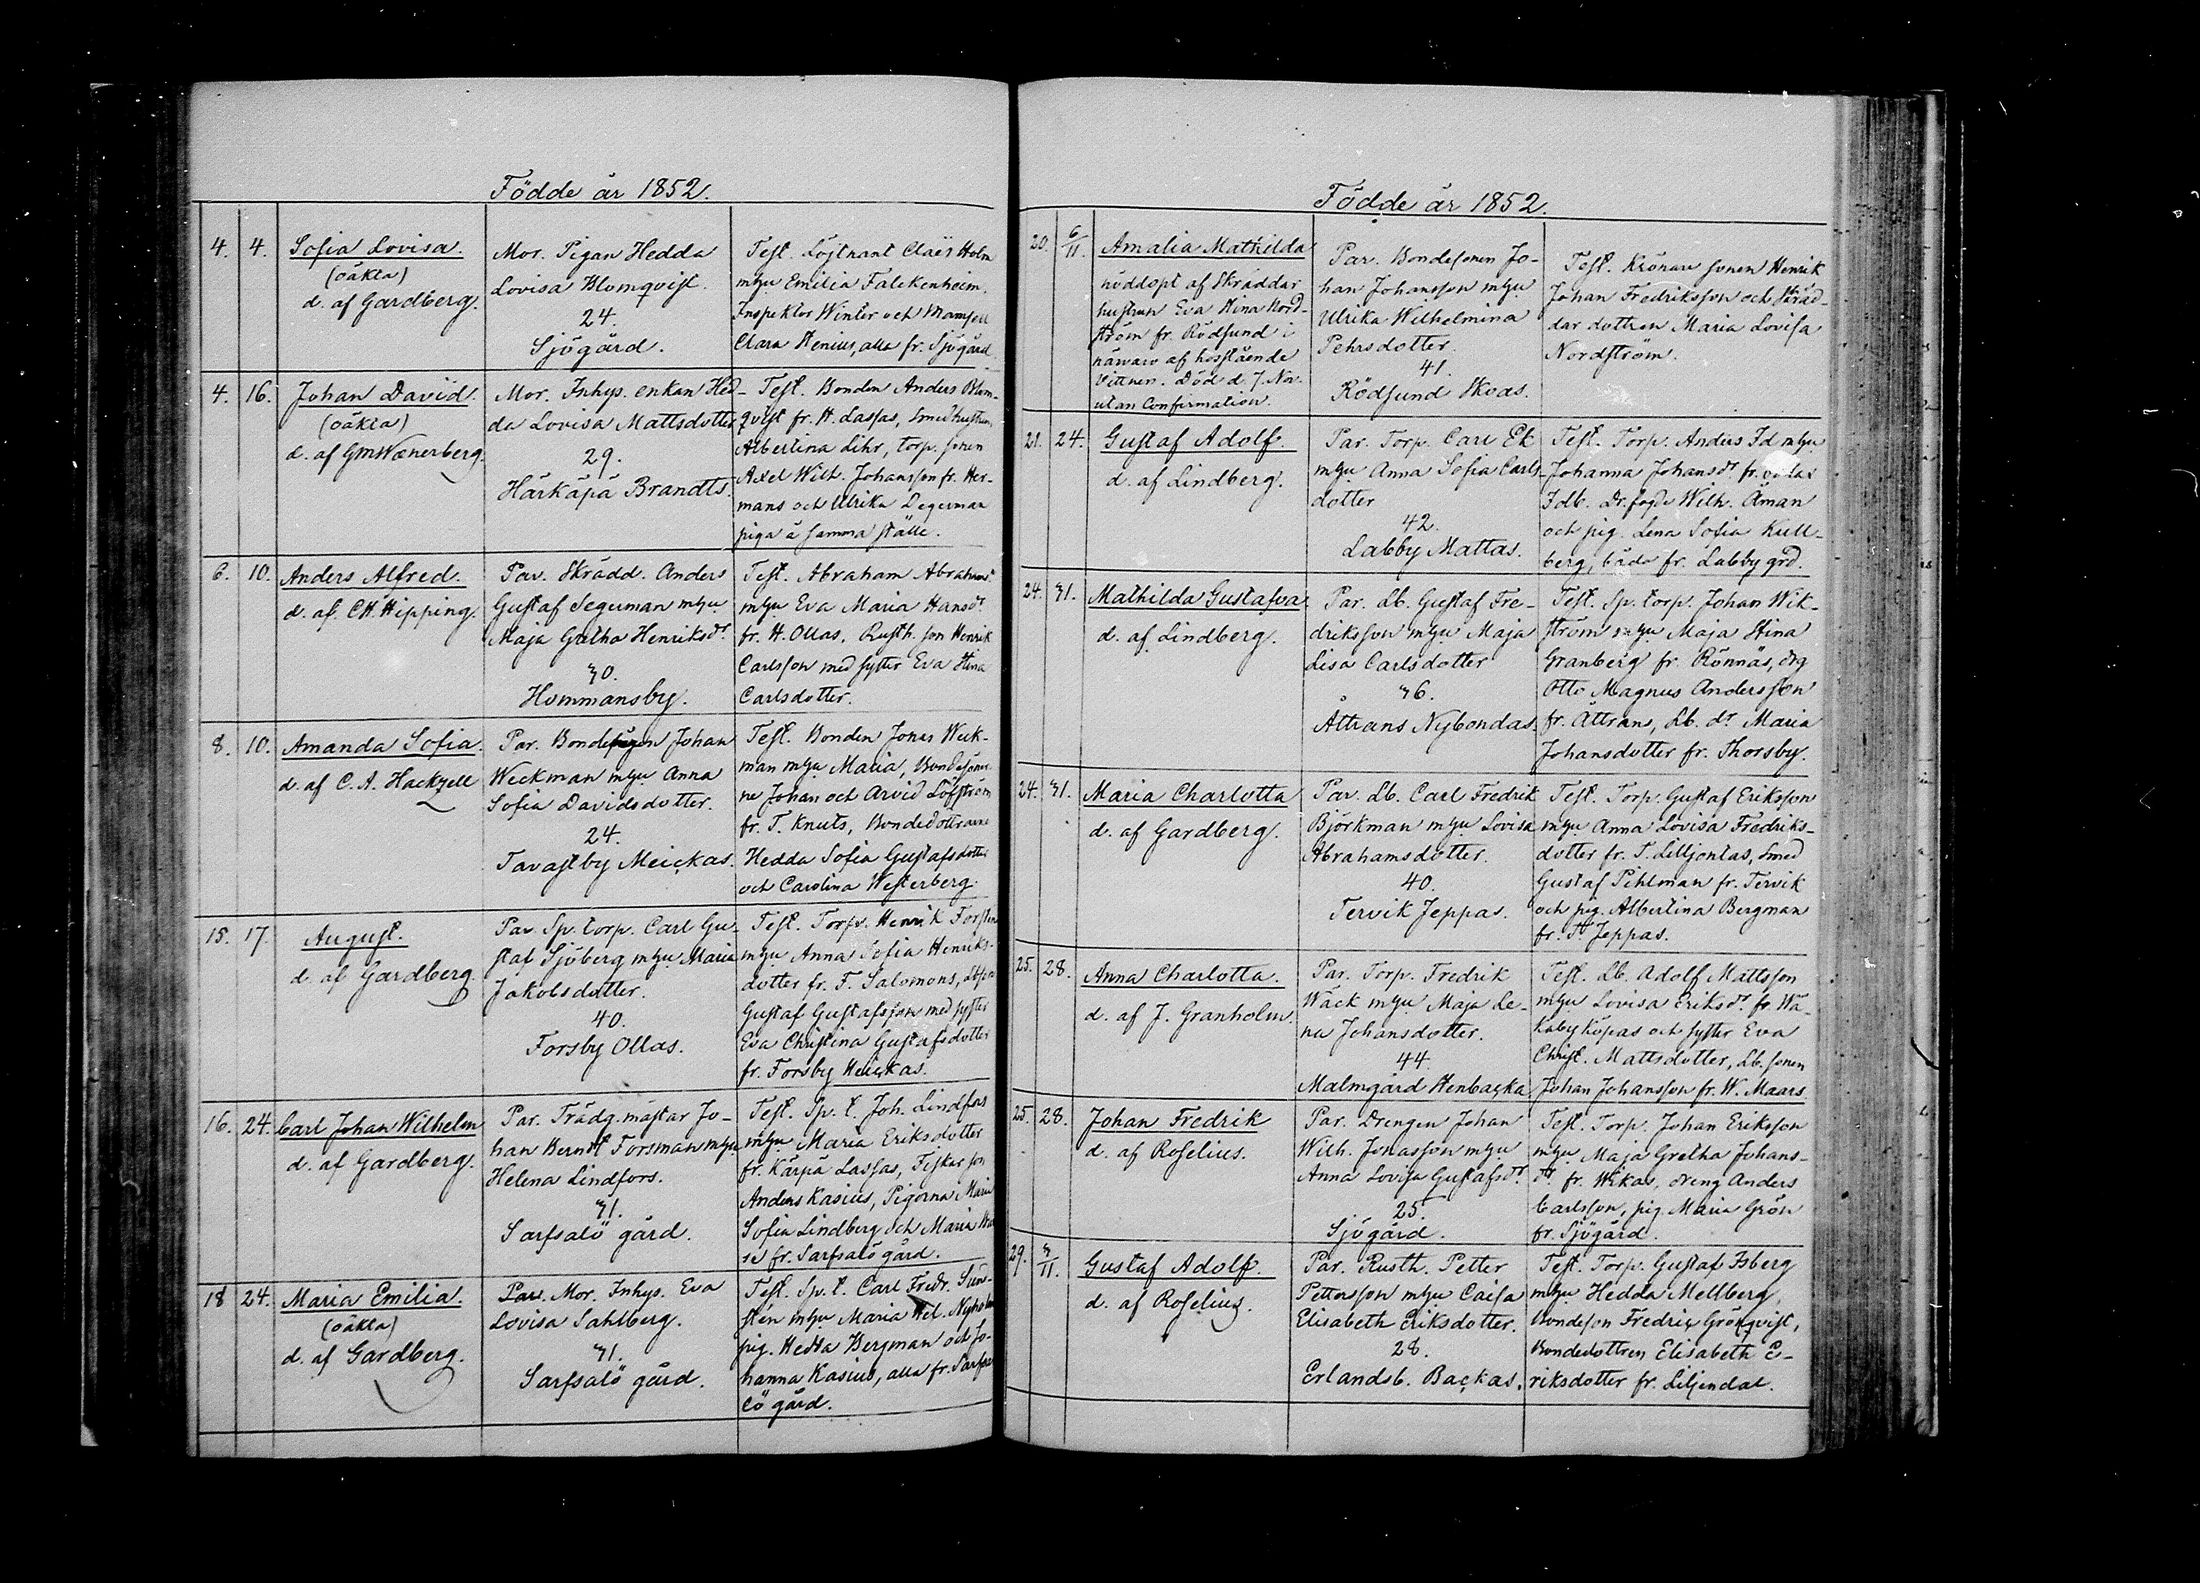 Födde år 1852.
4. 4. Sofia Lovisa.
(oäkta)
d. af Gardberg.
Mor. Pigan Hedda
Lovisa Blomqvist.
24.
Sjögård.
Test. Löjtnant Claës Holm
mhu Emilia Falckenheim.
Inspektor Winter och Mamsell
Clara Henius, alla fr. Sjögård
4. 16. Johan David.
(oäkta)
d. af GmWænerberg.
Mor. Inhys. enkan Hed-
da Lovisa Mattsdotter
29.
Härkäpä Brandts.
Test. Bonden Anders Blom-
qvist fr. H. Lassas, Smedhustrun
Albertina Lihr, torp. sonen
Axel Wilh. Johansson fr. Her-
mans och Ulrika Degerman
piga å samma ställe.
6. 10. Anders Alfred.
d. af. CH. Hipping.
Par. Skrädd. Anders
Gustaf Segerman mhu
Maja Gretha Henriksdr.
30.
Hommansby.
Test. Abraham Abrahamss
mhu Eva Maria Hansdr
fr. H. Ollas, Rusth. son Henrik
Carlsson med syster Eva Stina
Carlsdotter.
8. 10. Amanda Sofia.
d. af C. A. Hackzell
Par. Bonde Johan
Weckman mhu Anna
Sofia Davidsdotter.
24.
Tavastby Meickas.
Test. Bonden Jonas Weck-
man mhu Maria, Bondesöner-
ne Johan och Arvid Löfström
fr. T. Knuts, Bondedöttrarne
Hedda Sofia Gustafsdotter
och Carolina Westerberg.
15. 17. August.
d. af Gardberg
Par. Sp. torp. Carl Gu-
staf Sjöberg mhu Maria
Jakobsdotter.
40.
Forsby Ollas.
Test. Torp. Henrik Forstén
mhu Anna Sofia Henriks-
dotter fr. F. Salomons,
Gustaf Gustafsson med syster
Eva Christina Gustafsdotter
fr. Forsby Heickas.
16. 24. Carl Johan Wilhelm
d. af Gardberg.
Par. Trädg.mästar Jo-
han Berndt Forsman mhu
Helena Lindfors.
31.
Sarfsalö gård.
Test. Sp. t. Joh. Lindfors
mhu Maria Eriksdotter
fr. Kärpa Lassas, Fiskar son
Anders Kasius, Pigorna Maria
Sofia Lindberg och Maria
fr. Sarfsalö gård.
18 24. Maria Emilia.
(oäkta)
d. af Gardberg.
Par. Mor. Inhys. Eva
Lovisa Sahlberg.
31.
Sarfsalö gård.
Test. Sp. t. Carl Fredr. Sund-
stén mhu Maria Hel. Nyholm
pig. Hedda Bergman och Jo-
hanna Kasius, alla fr. Sarfsa
lö gård.
Födde år 1852.
20. 6/11. Amalia Mathilda
nöddöpt af Skräddar
hustrun Eva Stina Nord-
ström fr. Rödsund i
närvaro af hosstående
Vittnen. Död d. 7 Nov.
utan Confirmation.
Par. Bondesonen Jo-
han Johansson mhu
Ulrika Wilhelmina
Pehrsdotter
41.
Rödsund Skoas.
Test. Krönare sonen Henrik
Johan Fredriksson och Skräd-
dar dottren Maria Lovisa
Nordström.
21. 24. Gustaf Adolf.
d. af Lindberg.
Par. Torp. Carl Ek
mhu Anna Sofia Carls-
dotter
42.
Labby Mattas.
Test. Torp. Anders Id mhu
Johanna Johansdr fr.
Idb. Dr. fogde Wilh. Åman
och pig. Lena Sofia Kull-
berg, båda fr. Labby grd.
24. 31. Mathilda Gustafva
d. af Lindberg.
Par. Lb. Gustaf Fre-
driksson mhu Maja
Lisa Carlsdotter
36.
Åttrans Nybondas.
Test. Sp. torp. Johan Wik-
ström mhu Maja Stina
Granberg fr. Rönnäs, drg
Otto Magnus Andersson
fr. Åttrans, Lb. dr. Maria
Johansdotter fr. Thorsby.
24. 31. Maria Charlotta
d. af Gardberg.
Par. Lb. Carl Fredrik
Björkman mhu Lovisa
Abrahamsdotter.
40.
Tervik Jeppas.
Test. Torp. Gustaf Eriksson
mhu Anna Lovisa Fredriks-
dotter fr. T. Lilljontas, Smed
Gustaf Pihlman fr. Tervik
och pig. Albertina Bergman
fr. T. Jeppas.
25. 28. Anna Charlotta.
d. af J. Granholm.
Par. Torp. Fredrik
Wäck mhu Maja Le-
na Johansdotter.
44.
Malmgård Henbacka
Test. Lb. Adolf Mattsson
mhu Lovisa Eriksdr fr. Wä-
kaby Köpas och syster Eva
Christ. Mattsdotter, Lb. sonen
Johan Johansson fr. W. Maars
25. 28. Johan Fredrik
d. af Roselius.
Par. Drengen Johan
Wilh. Jonasson mhu
Anna Lovisa Gustafsdr.
25.
Sjögård.
Test. Torp. Johan Eriksson
mhu Maja Gretha Johans-
dr. fr. Wikas, dreng Anders
Carlsson, pig. Maria Grön
fr. Sjögård.
29. 3/11. Gustaf Adolf.
d. af Roselius.
Par. Rusth. Petter
Pettersson mhu Caisa
Elisabeth Eriksdotter.
28.
Erlandsb. Backas.
Test. Torp. Gustaf Isberg
mhu Hedda Mellberg,
Bondeson Fredric Grönqvist,
Bondedottren Elisabeth E-
riksdotter fr. Liljendal.